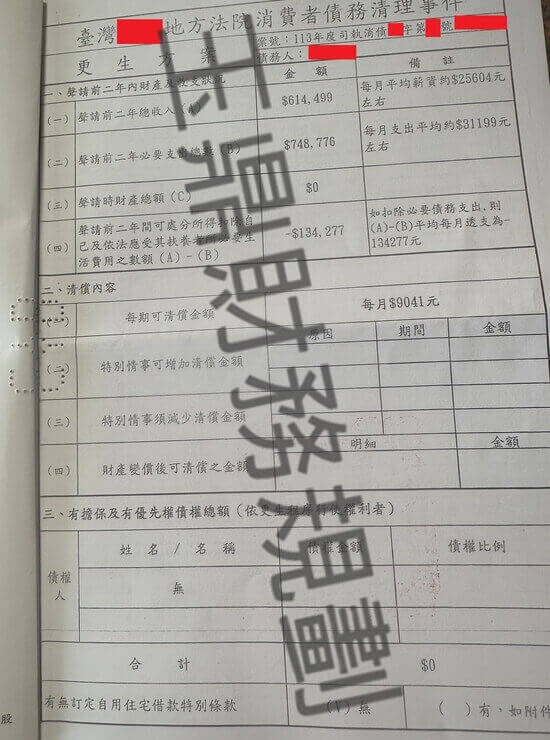 臺灣 地方法院消費者債務清理事件
更生方案
案號：113年度司執消債 字第 號
債務人：
一、聲請前二年內財產及收支狀況 金額 備註
(一) 聲請前二年總收入(A) $614,499 每月平均薪資約$25604元左右
(二) 聲請前二年必要支出總數(B) $748,776 每月支出平均約$31199元左右
(三) 聲請時財產總額(C) $0
(四) 聲請前二年間可處分所得扣除自
己及依法應受其扶養者所必要生
活費用之數額(A)-(B)
-$134,277
如扣除必要債務支出,則
(A)-(B)平均每月透支為-
134277元
二、清償內容
(一) 每期可清償金額 每月$9041元
(二) 特別情事可增加清償金額 原因 期間 金額
(三) 特別情事須減少清償金額
(四) 財產變價後可清償之金額 明細 金額
三、有擔保及有優先權債權總額(依更生程序行使權利者)
債權人 姓名/名稱 債權金額 債權比例
無
合計 $0
有無訂定自用住宅借款特別條款 (V)無 ( )有,如附件
股
玉鼎財務規劃